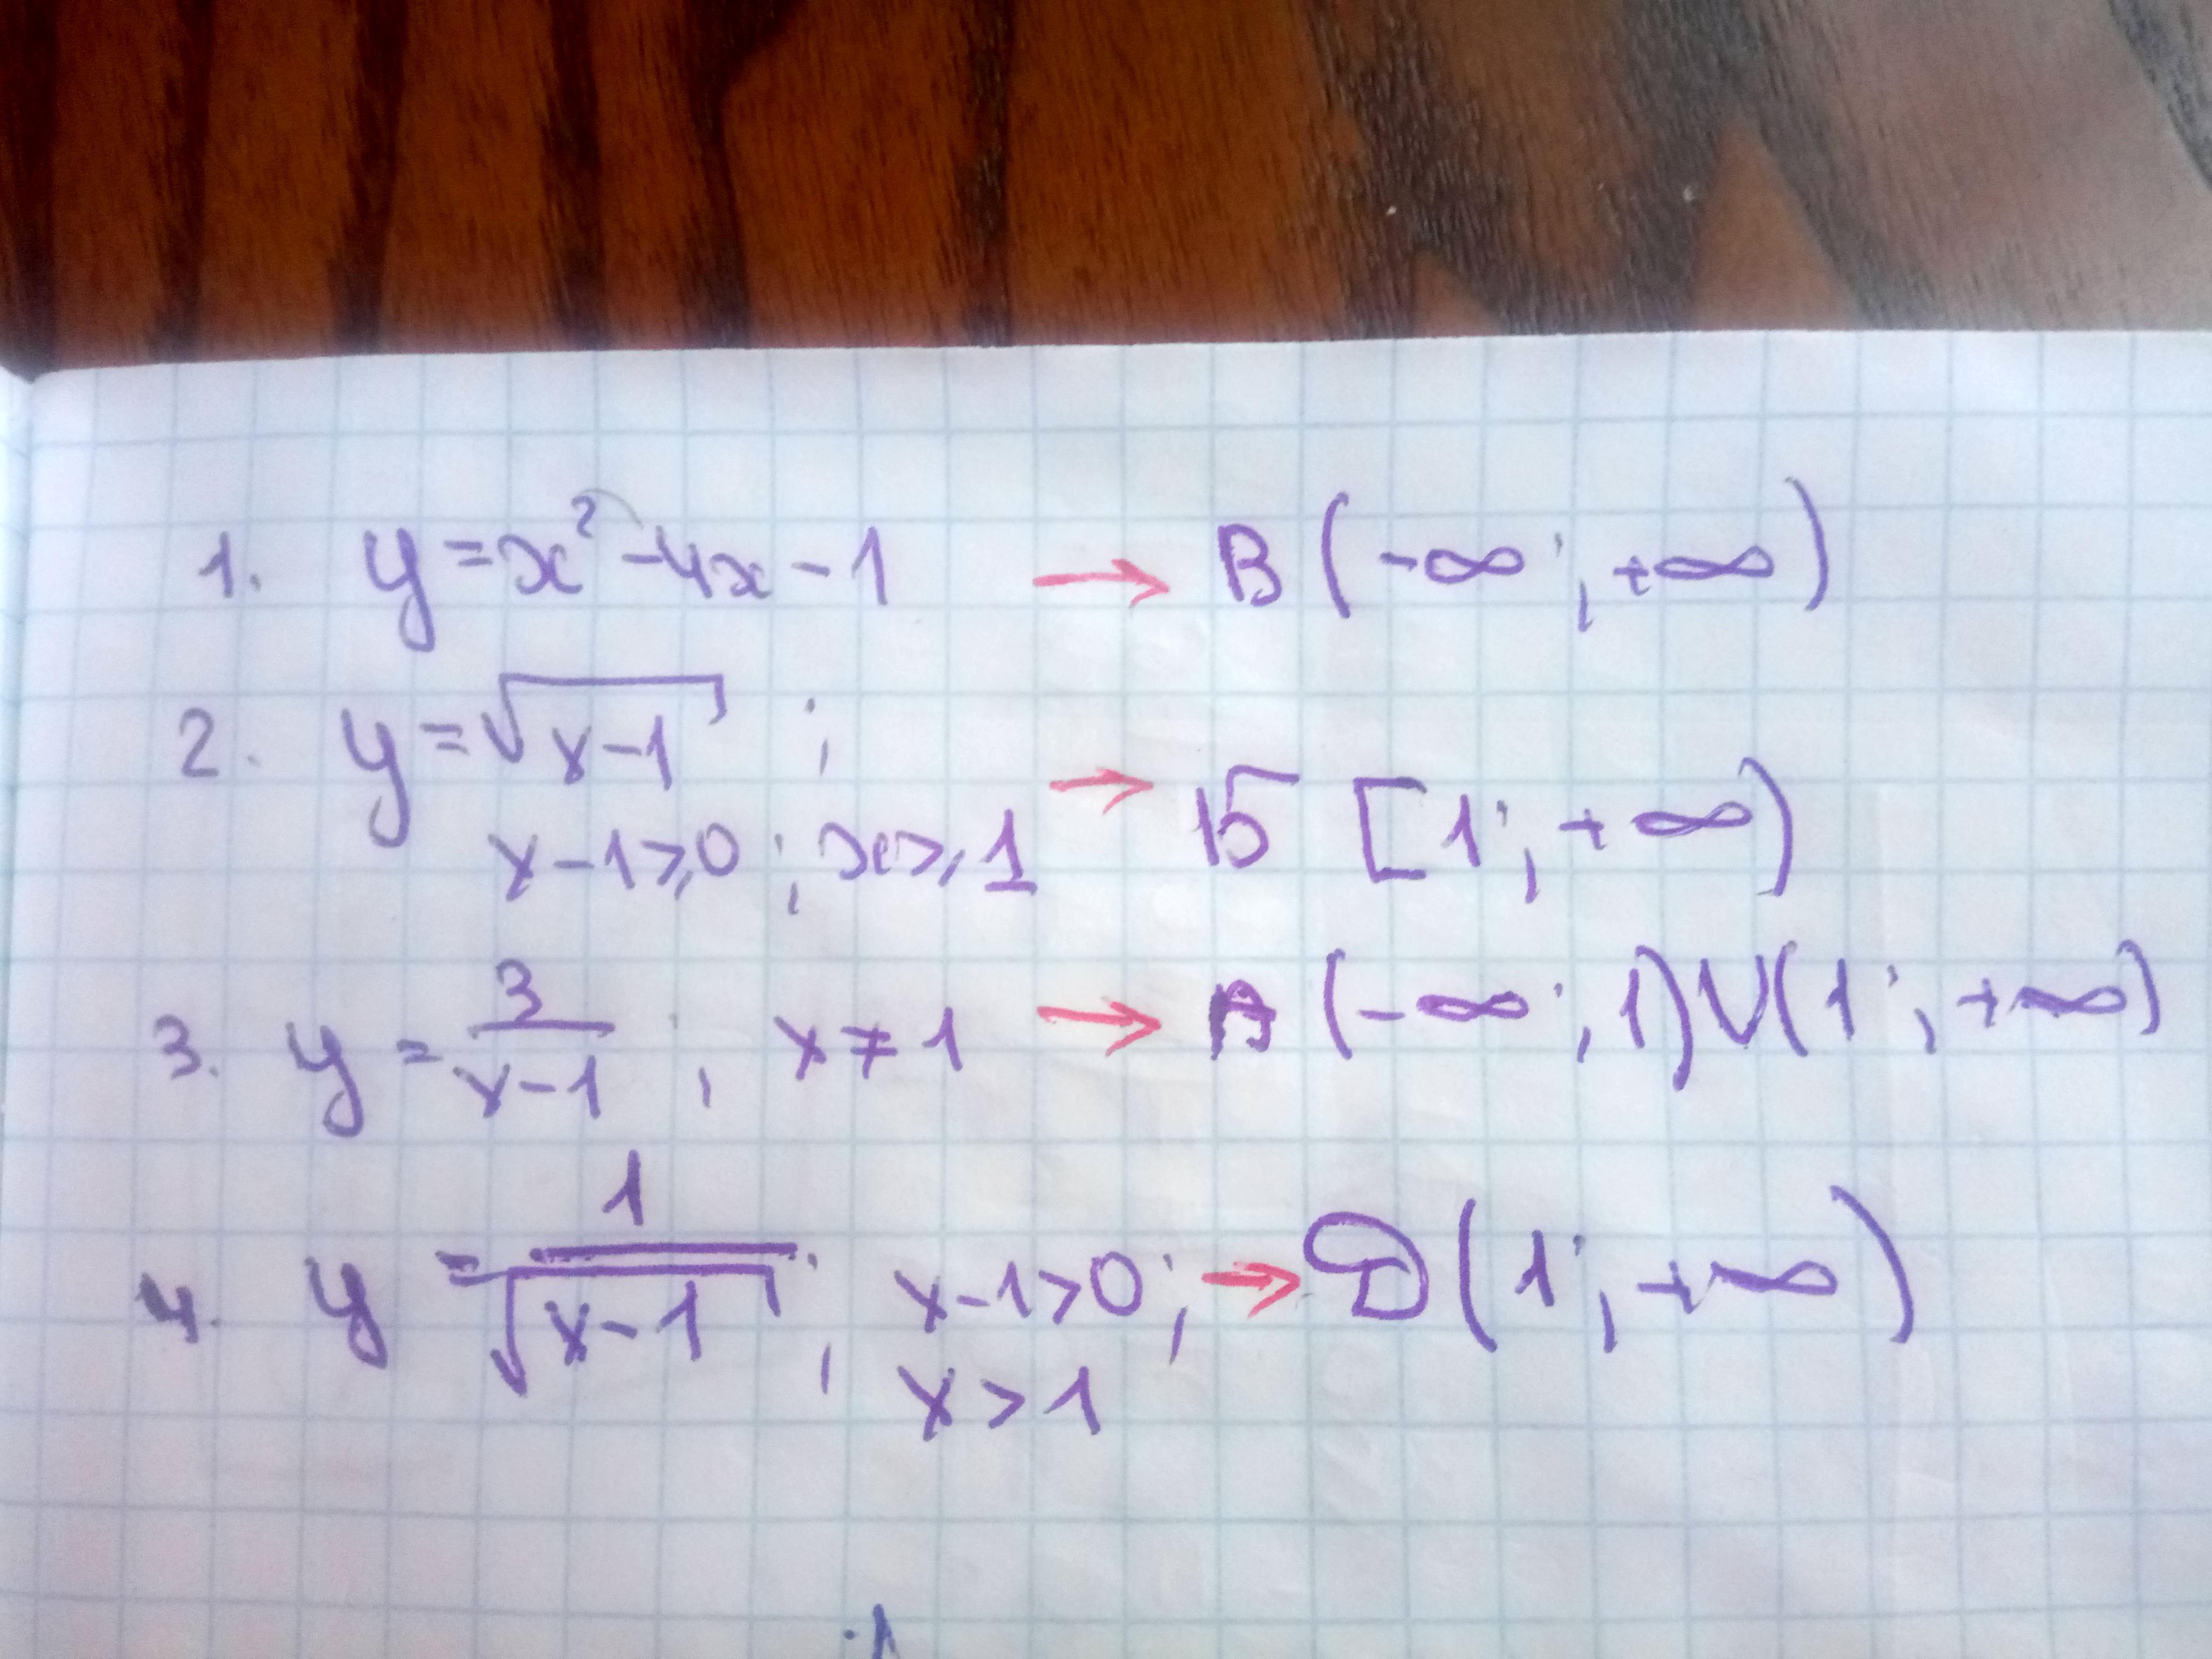 1. y=x²-4x-1 → В (-∞; +∞)
2. y=√(x-1) ;
x-1≥0 ; x≥1 → Б [1; +∞)
3. y=3/(x-1) ; x≠1 → А (-∞; 1)∪(1; +∞)
4. y=1/√(x-1) ; x-1>0; → Д (1; +∞)
x>1